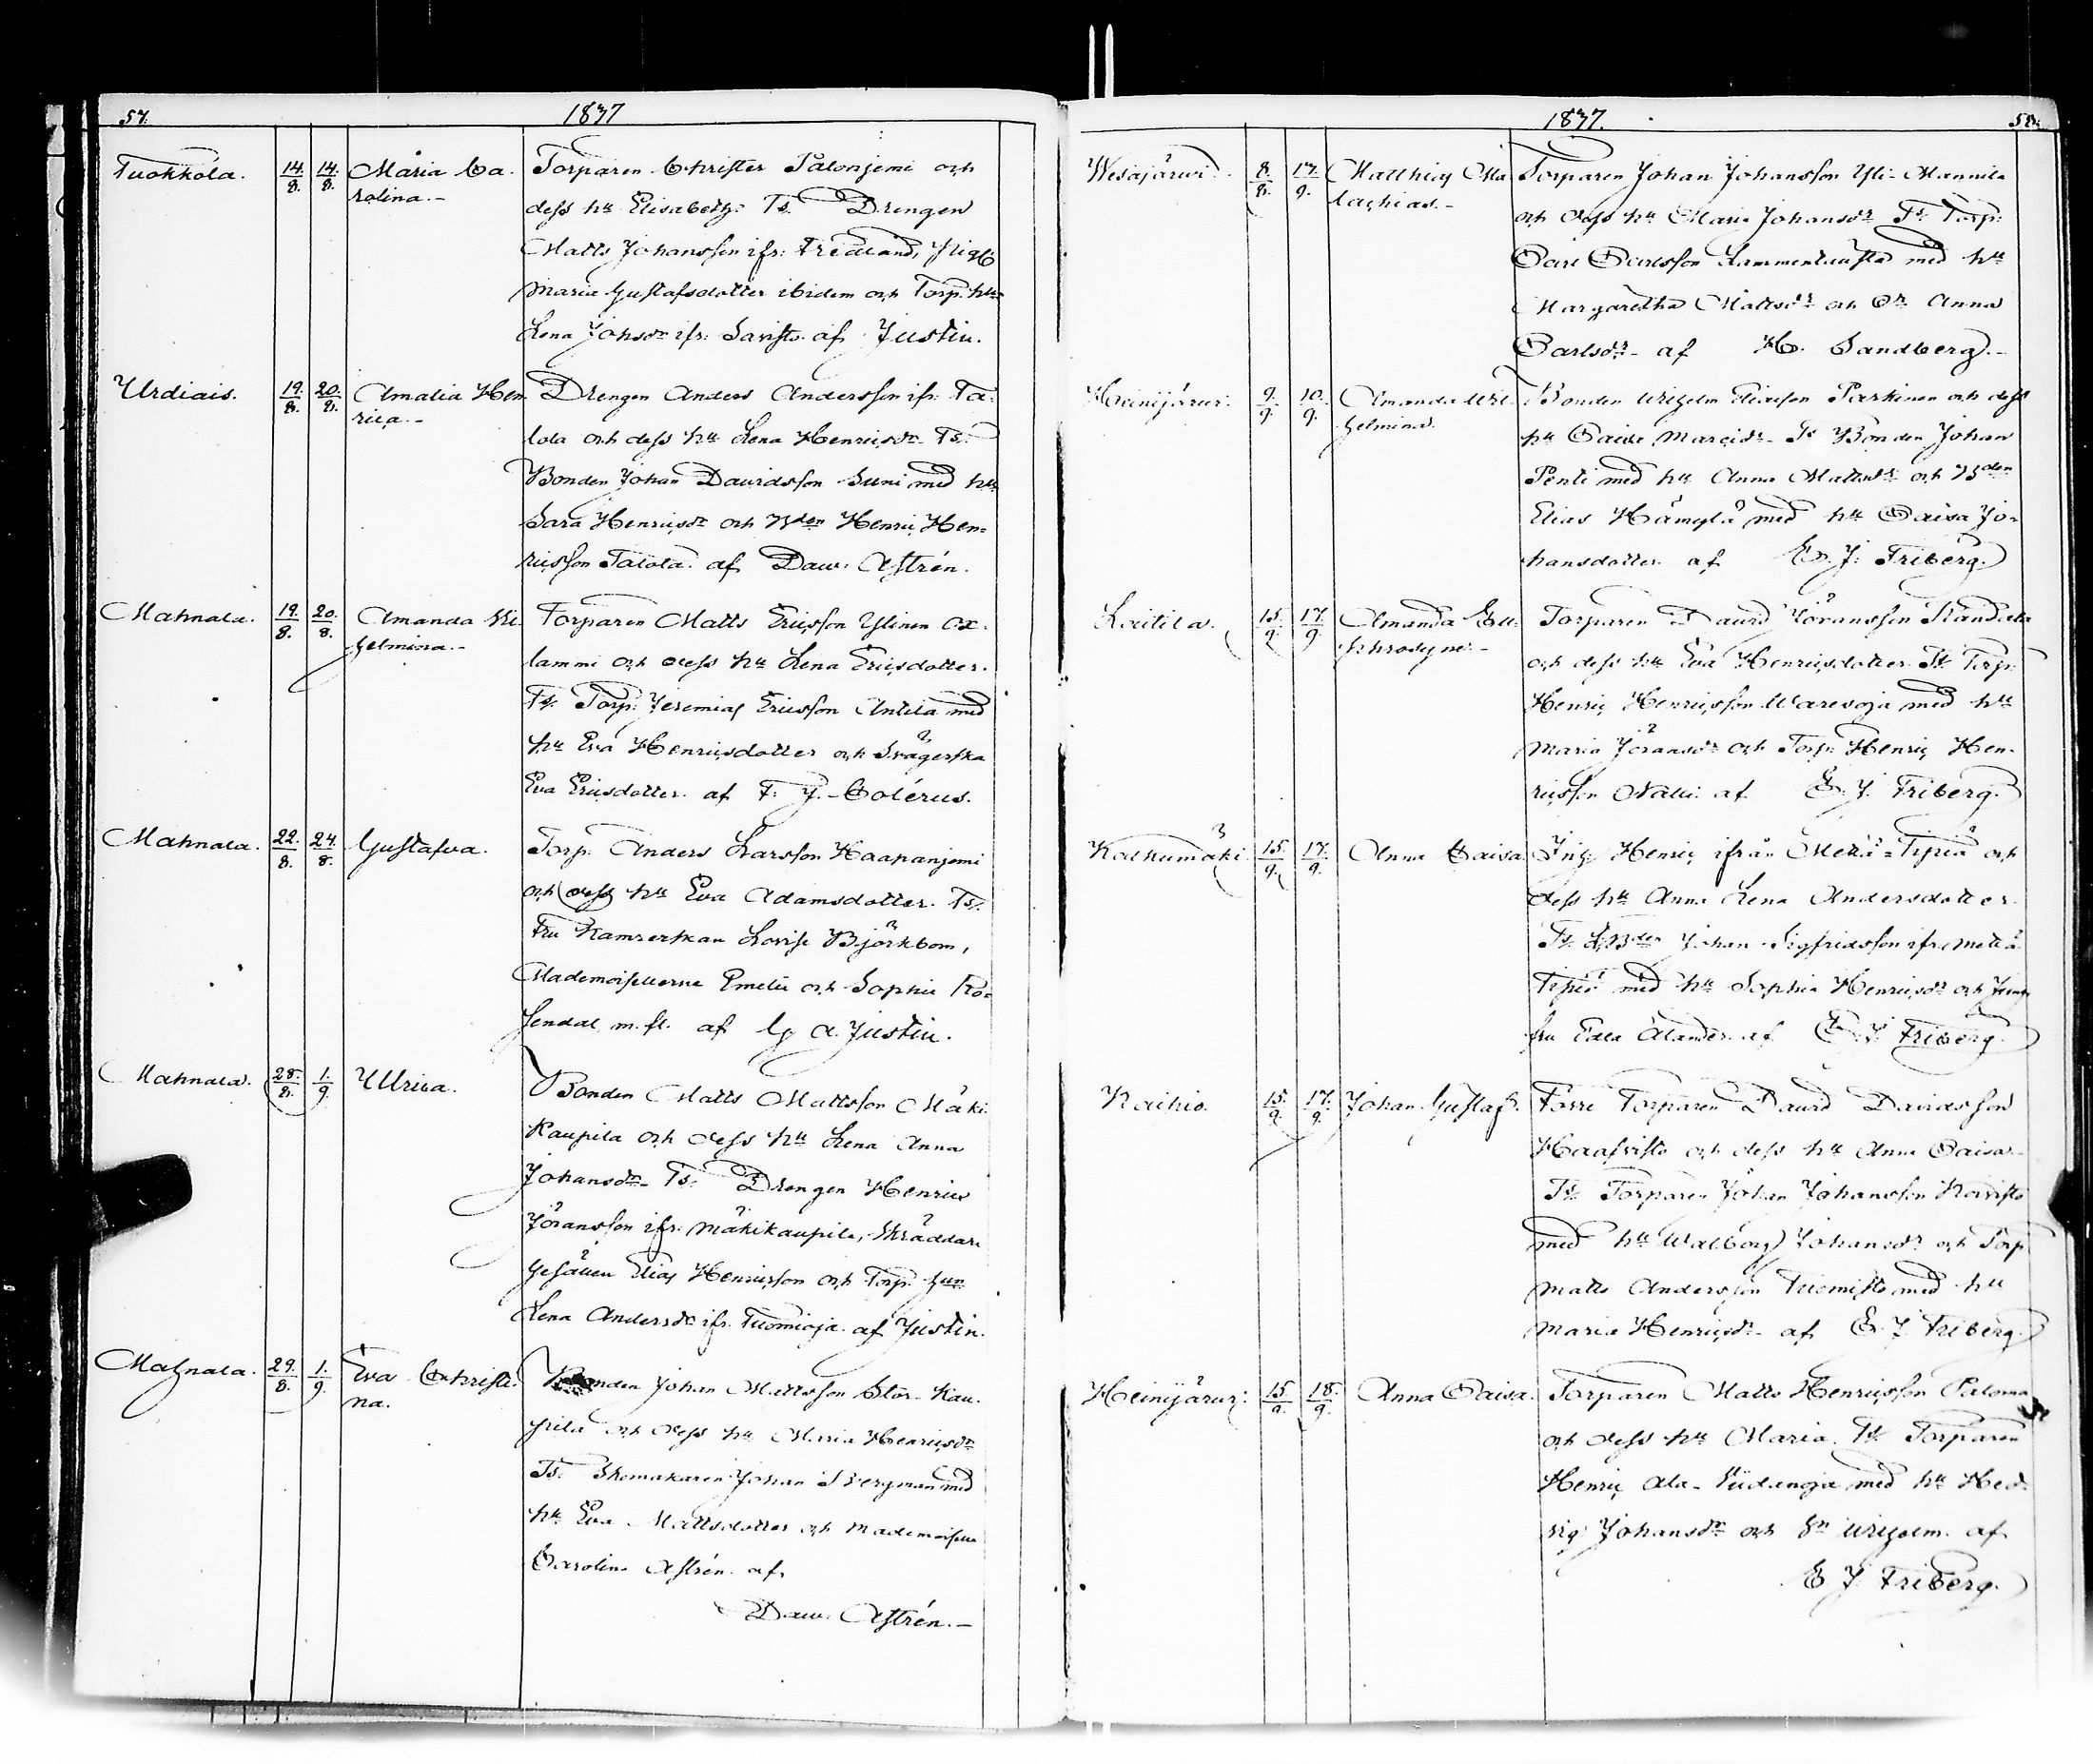 57. 1837
Tuokkola. 14/8. 14/8. Maria Ca-
rolina.-
Torparen Christer Palonjemi och
dess hu Elisabeth. Ts. Drengen
Matts Johansson ifr: Fredland, Pig
Maria Gustafsdotter ibidem och Torp. hu
Lena Johsdr ifr: Saristo. af Justin.
Urdiais. 19/8. 20/8. Amalia Hen
rica.-
Drengen Anders Andersson ifr: Ta-
lola och dess hu Lena Henricsdr. Ts.
Bonden Johan Davidsson Suni med hu
Sara Henricsdr och Bden Henric Hen-
ricsson Talola. af Daw. Astrén.
Mahnala. 19/8. 20/8. Amanda Wi
helmina.-
Torparen Matts Ericsson Ylinen Ox-
lammi och dess hu Lena Ericsdotter.
Ts. Torp: Jeremias Ericsson Antila med
hu Eva Henricsdotter och Svägerska
Eva Ericsdotter. af F. J. Colérus.
Mahnala. 22/8. 24/8. Gustafva.
Torp. Anders Larsson Haapanjemi
och dess hu Eva Adamsdotter. Ts.
Fru Kamrerskan Lovise Björkbom,
Mademoisellerne Emelie och Sophie Ro-
sendal m.fl. af G. A. Justin.
Mahnala. 28/8. 1/9. Ulrica.
Bonden Matts Mattsson Mäki
Kaupila och dess hu Lena Anna
Johansdr. Ts. Drengen Henric
Jöransson ifr: Mäkikaupila, Skräddare
Gesällen Elias Henricsson och Torp. hun
Lena Andersdr ifr. Tuomioja. af Justin.
Mahnala. 29/8. 1/9. Eva Christi-
na.
Bonden Johan Mattsson Stor-Kau-
pila och dess hu Maria Henricsdr
Ts. Skomakaren Johan Bergman med
hu Eva Mattsdotter och Mademoiselle
Carolina Astrén. af
Daw. Astrén.-
1837. 58.
Wesajärvi. 8/8. 17/9. Matthias Ma
lachias.-
Torparen Johan Johansson Yli-Mannila
och dess hu Maria Johansdr Ts. Torp:
Carl Carlsson Lammentausta med hu
Margaretha Mattsdr och Dr Anna
Carlsdr. af H. Sandberg.-
Heinijärvi. 9/9. 10/9. Amanda Wil-
helmina.
Bonden Wilhelm Eliasson Parkinen och dess
hu Caisa Marcidr. Ts Bonden Johan
Penti med hu Anna Mattsdr och Bden
Elias Hämylä med hu Caisa Jo-
hansdotter. af E. J. Friberg.
Laitila. 15/9. 17/9 Amanda Eu-
phrosyne.-
Torparen David Jöransson Kandola
och dess hu Eva Henricsdotter. Ts. Torp:
Henric Henricsson Waresoja med hu
Maria Jöransdr och Torp. Henric Hen-
ricsson Nalli. af E. J. Friberg.
Kalkumäki. 15/9. 17/9. Anna Caisa
Ing. Henric ifrån Metlä-Tipiä och
dess hu Anna Lena Andersdotter.
Ts. Bden Johan Sigfridsson ifr: Metlä
Tipiä med hu Sophia Henricsdr och Jung
fru Edla Alander. af E. J. Friberg.
Kaihio. 15/9. 17/9. Johan Gustaf.
Förre Torparen David Davidsson
Haafvisto och dess hu Anna Caisa.
Ts. Torparen Johan Johansson Koivisto
med hu Walborg Johansdr och Torp
Matts Andersson Tuomisto med hu
Maria Henricsdr. af E. J. Friberg.
Heinijärvi. 15/9. 18/9. Anna Caisa.
Torparen Matts Henricsson Paloma
och dess hu Maria. Ts. Torparen
Henric Ala-Viidanoja med hu Hed-
vig Johansdr och Sn Wilhelm. af
E. J. Friberg.